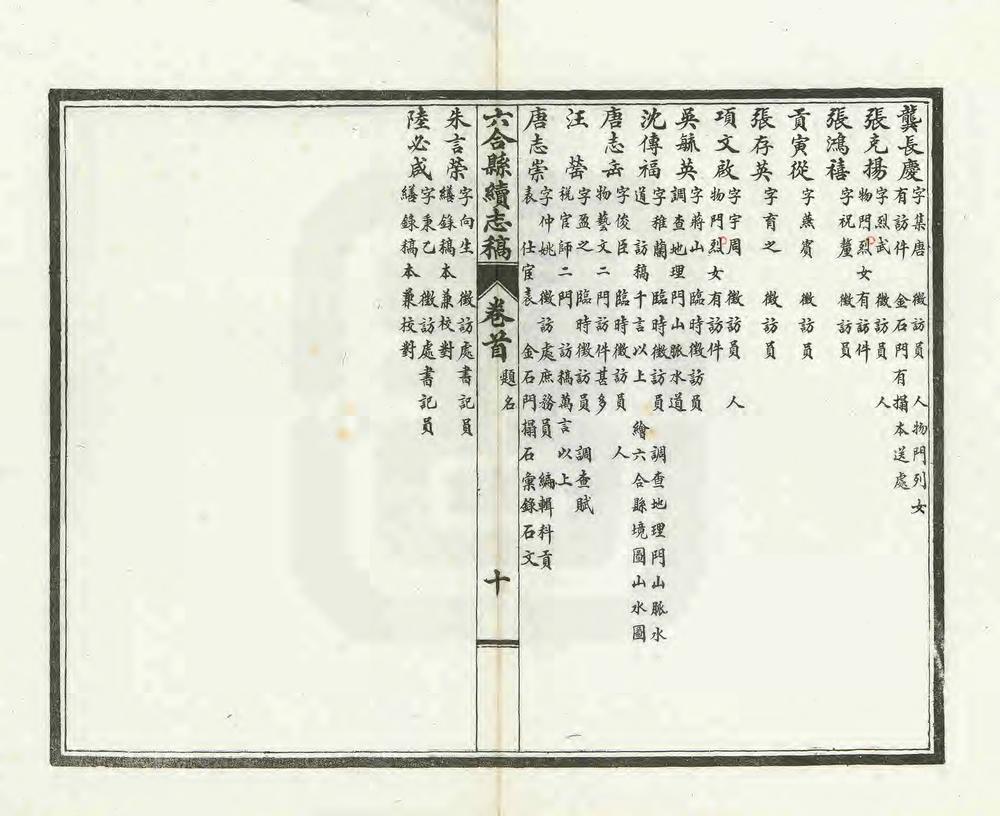 龔長慶 字集唐 徵訪員 人物門列女
有訪件 金石門有搨本送處
張克揚 字烈武 徵訪員 人
物門烈女 有訪件
張鴻禧 字祝釐 徵訪員
貢寅從 字燕賓 徵訪員
張存英 字育之 徵訪員
項文啟 字宇周 徵訪員 人
物門烈女 有訪件
吳毓英 字蔣山 臨時徵訪員
調查地理門山脈水道
沈傳福 字雅蘭 臨時徵訪員 調查地理門山脈水
道 訪稿千言以上 繪六合縣境圖山水圖
唐志岳 字俊臣 臨時徵訪員 人
物藝文二門訪件甚多
汪 字盈之 臨時徵訪員 調查賦
稅官師二門 訪稿萬言以上
唐志崇 字仲姚 徵訪處庶務員 編輯科貢
表 仕宦表 金石門搨石彙錄石文
六合縣續志稿 卷首 題名 十
朱言榮 字向生 徵訪處書記員
繕錄稿本兼校對
陸必成 字秉乙 徵訪處書記員
繕錄稿本 兼校對